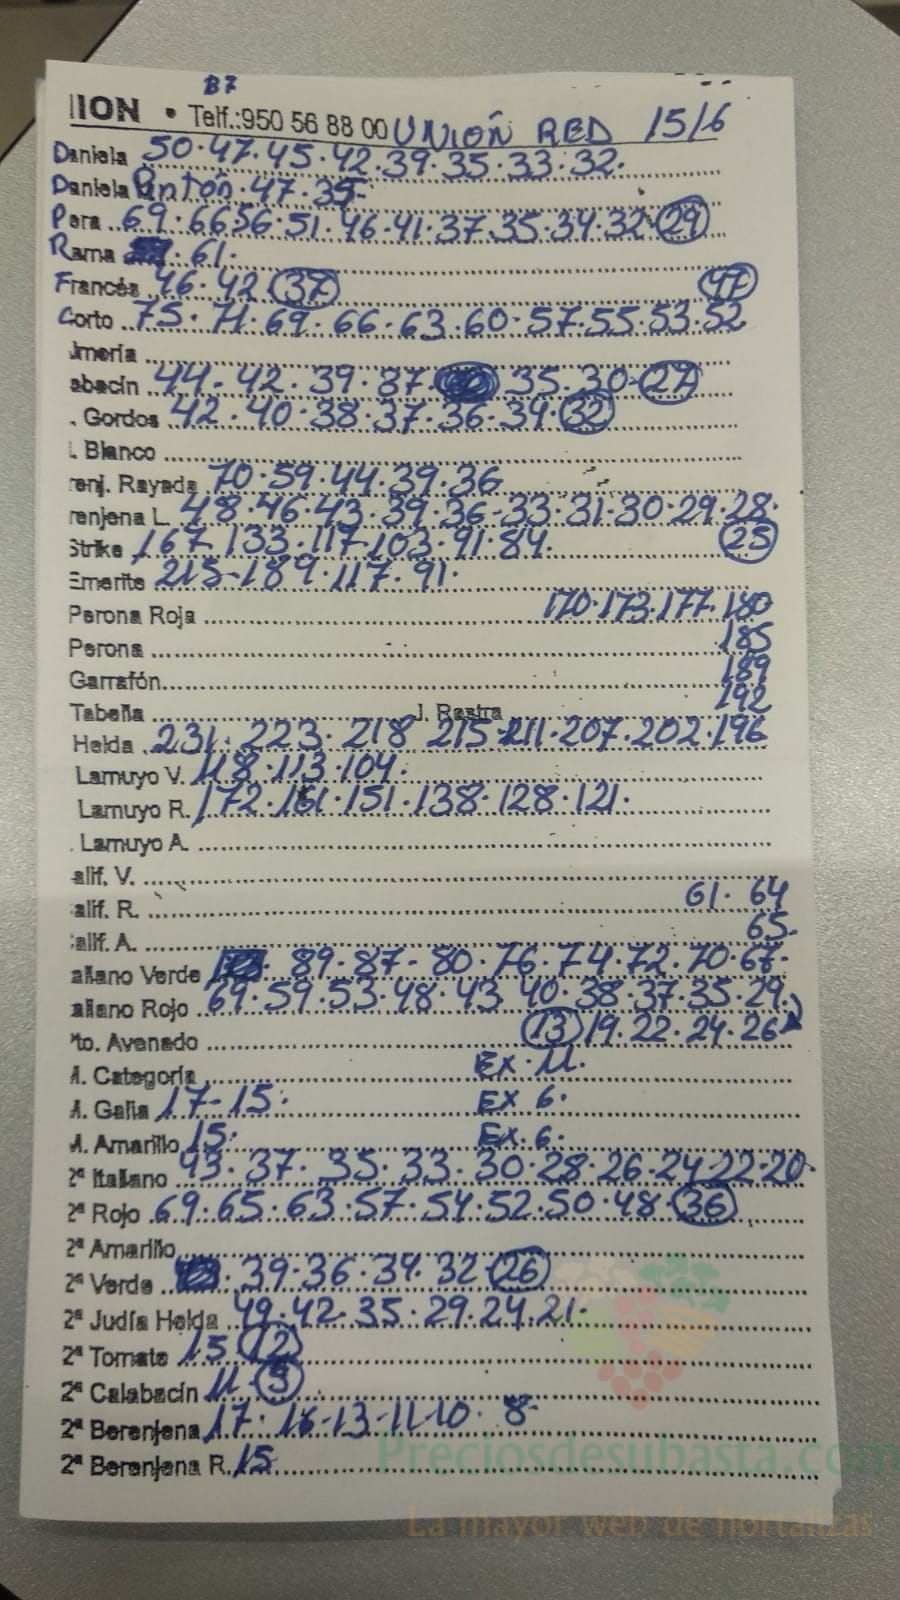 B7
IION • Telf.:950 56 88 00 UNIÓN RED 15/6
Daniela 50·47·45·42·39·35·33·32·
Daniela Pintón·47·35
Pera 69·66 56·51·46·41·37·35·34·32·29
Rama 61·
Francés 46·42 37 47
Corto 75·71·69·66·63·60·57·55·53·52
lmería
abacín 44·42·39·37· 35·30·27
. Gordos 42·40·38·37·36·34·32
. Blanco
renj. Rayada 70·59·44·39·36
renjena L. 48·46·43·39·36·33·31·30·29·28·
Strike 167·133·117·103·91·84· 25
Emerite 215-189·117·91·
Perona Roja 170·173·177·180
Perona 185
Garrafón 189
Tabella J. Rastra 192
Helda 231·223·218 215·211·207·202·196
Lamuyo V. 118·113·104·
Lamuyo R. 172·161·151·138·128·121·
. Lamuyo A.
alif. V.
alif. R. 61·64
alif. A. 65·
aliano Verde 89·87·80·76·74·72·70·67·
aliano Rojo 69·59·53·48·43 40·38·37·35·29
to. Avenado 13 19·22·24·26
M. Categoría EX·11·
M. Galia 17-15· EX 6·
M. Amarillo 15· EX·6·
2ª Italiano 43·37·35·33·30·28·26·24·22·20·
2ª Rojo 69·65·63·57·54·52·50·48·36
2ª Amarillo
2ª Verde 39·36·34·32·26
2ª Judía Helda 49·42·35·29·24·21·
2ª Tomate 15 12
2ª Calabacín 11·3
2ª Berenjena 17·16-13-11-10·8-
2ª Berenjena R. 15
Preciosdesubasta.com
La mayor web de hortalizas